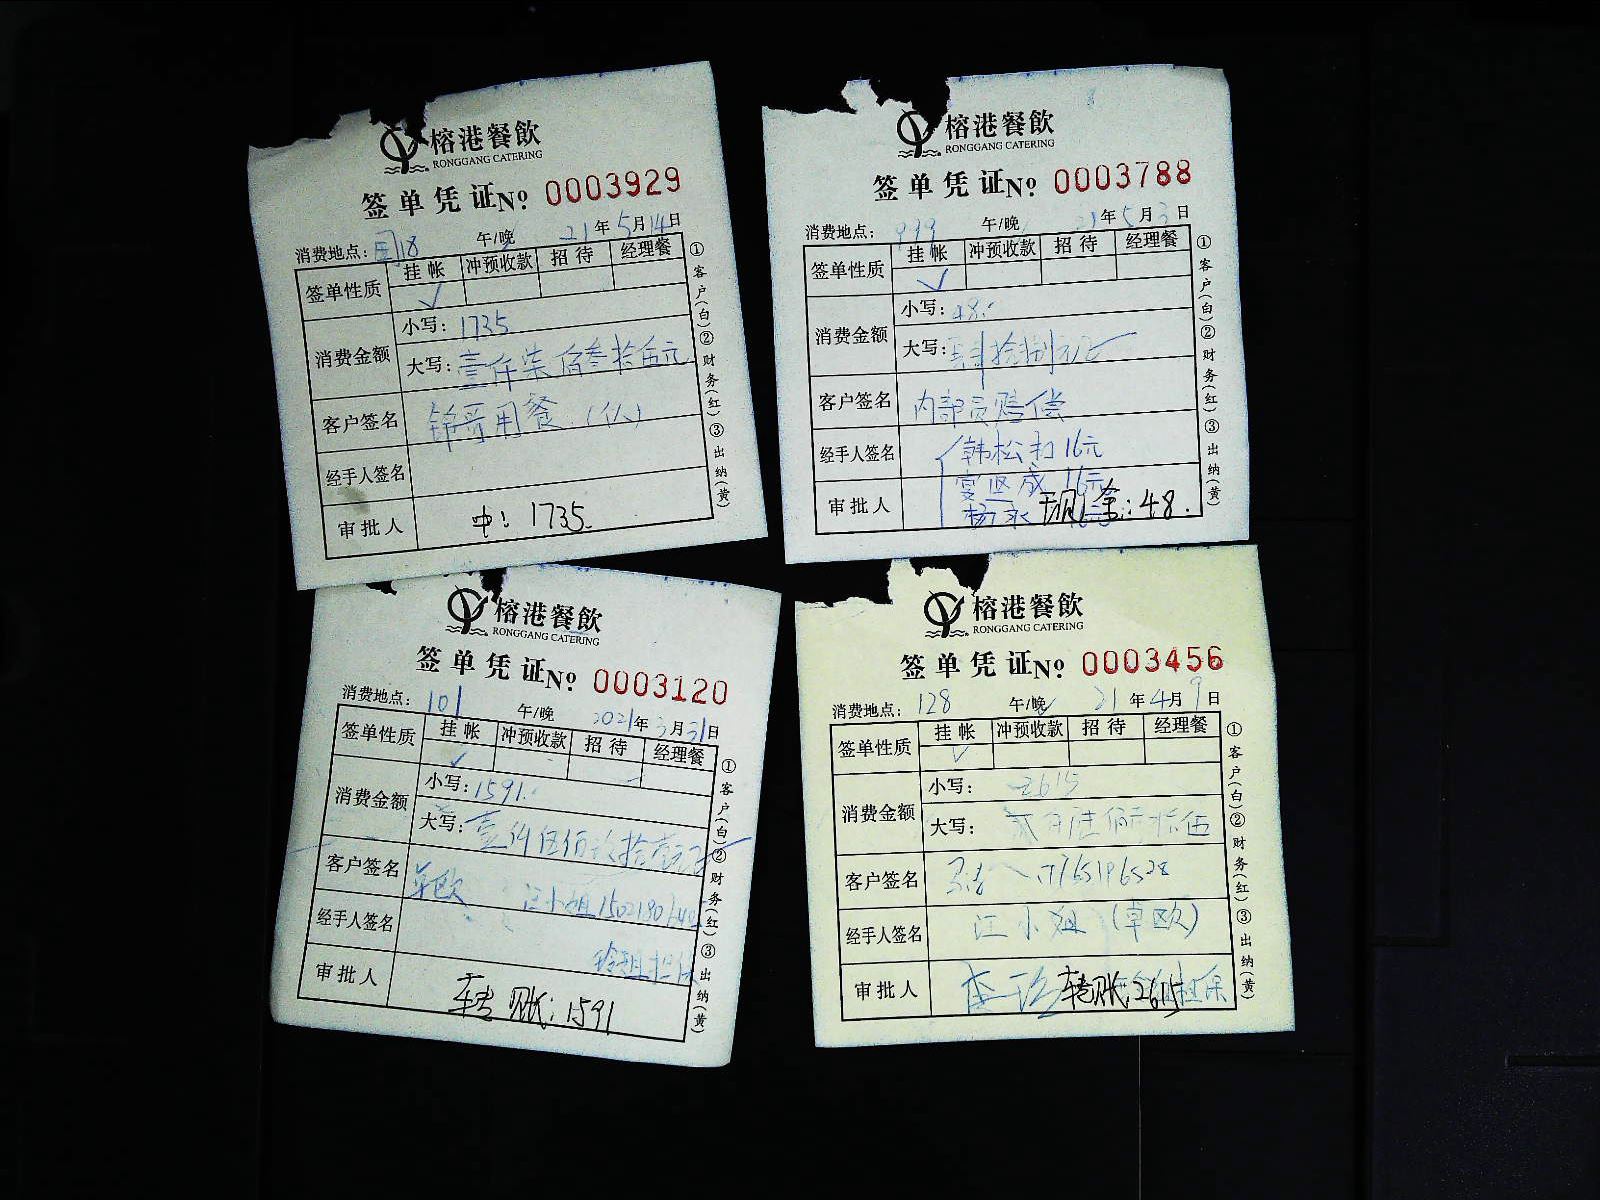 榕港餐飲
RONGGANG CATERING
签单凭证 Nº 0003929
消费地点: 18 午/晚 21年5月14日
签单性质 挂帐 冲预收款 招待 经理餐
✓
消费金额 小写: 1735
大写: 壹仟柒佰叁拾伍元
客户签名 锦哥用餐.
经手人签名
审批人 中: 1735
①客户(白)②财务(红)③出纳(黄)
榕港餐飲
RONGGANG CATERING
签单凭证 Nº 0003788
消费地点: 999 午/晚 21年5月3日
签单性质 挂帐 冲预收款 招待 经理餐
✓
消费金额 小写: 48.
大写: 肆拾捌元正
客户签名 内部员赔偿
经手人签名 韩松扣16元
16元
审批人 杨永 现金: 48.
①客户(白)②财务(红)③出纳(黄)
榕港餐飲
RONGGANG CATERING
签单凭证 Nº 0003120
消费地点: 101 午/晚 2021年3月31日
签单性质 挂帐 冲预收款 招待 经理餐
✓
消费金额 小写: 1591.
大写: 壹仟伍佰玖拾壹元正
客户签名 卓欧 江小姐
经手人签名
玲姐担保
审批人 转账: 1591
①客户(白)②财务(红)③出纳(黄)
榕港餐飲
RONGGANG CATERING
签单凭证 Nº 0003456
消费地点: 128 午/晚 21年4月9日
签单性质 挂帐 冲预收款 招待 经理餐
✓
消费金额 小写: 2615
大写: 贰仟陆佰元拾伍
客户签名
经手人签名 江小姐 (卓欧)
审批人 转账: 2615 担保
①客户(白)②财务(红)③出纳(黄)